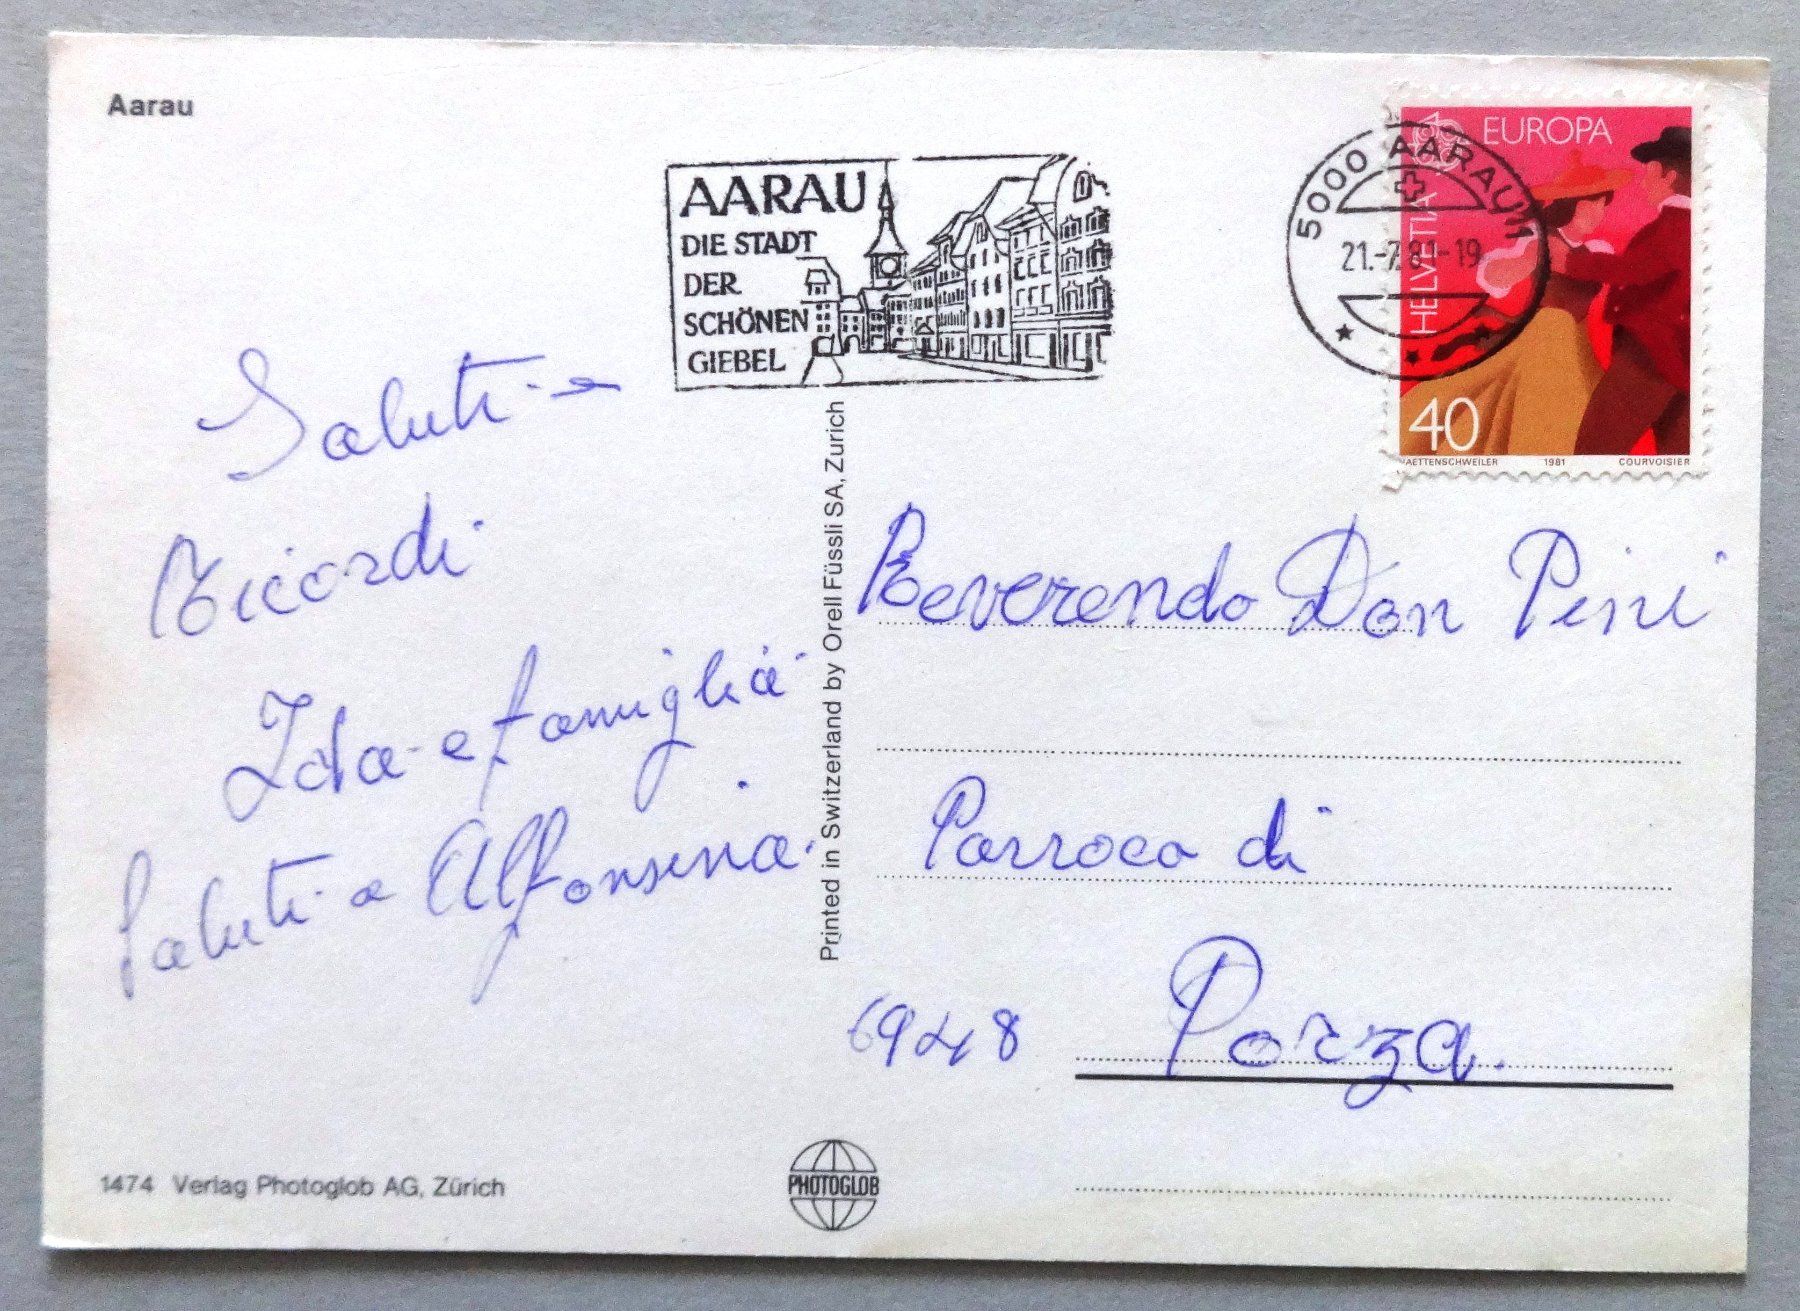 Aarau
AARAU
DIE STADT
DER
SCHÖNEN
GIEBEL
5000 AARAU 1
21.-7.81-19
EUROPA
HELVETIA
40
HAETTENSCHWEILER 1981 COURVOISIER
Saluti - e
Ricordi
Ida e famiglia
Saluti a Alfonsina.
Printed in Switzerland by Orell Füssli SA, Zurich
Reverendo Don Pini
Parroco di
6948 Porza.
1474 Verlag Photoglob AG, Zürich
PHOTOGLOB